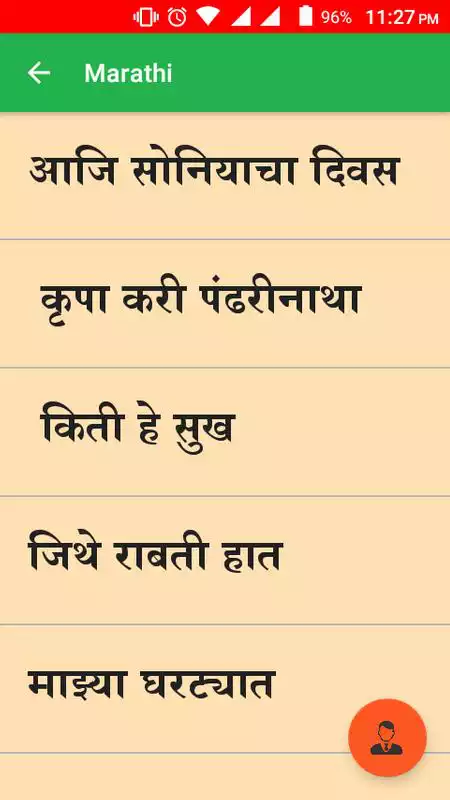 96% 11:27 PM
Marathi
आजि सोनियाचा दिवस
कृपा करी पंढरीनाथा
किती हे सुख
जिथे राबती हात
माझ्या घरट्यात